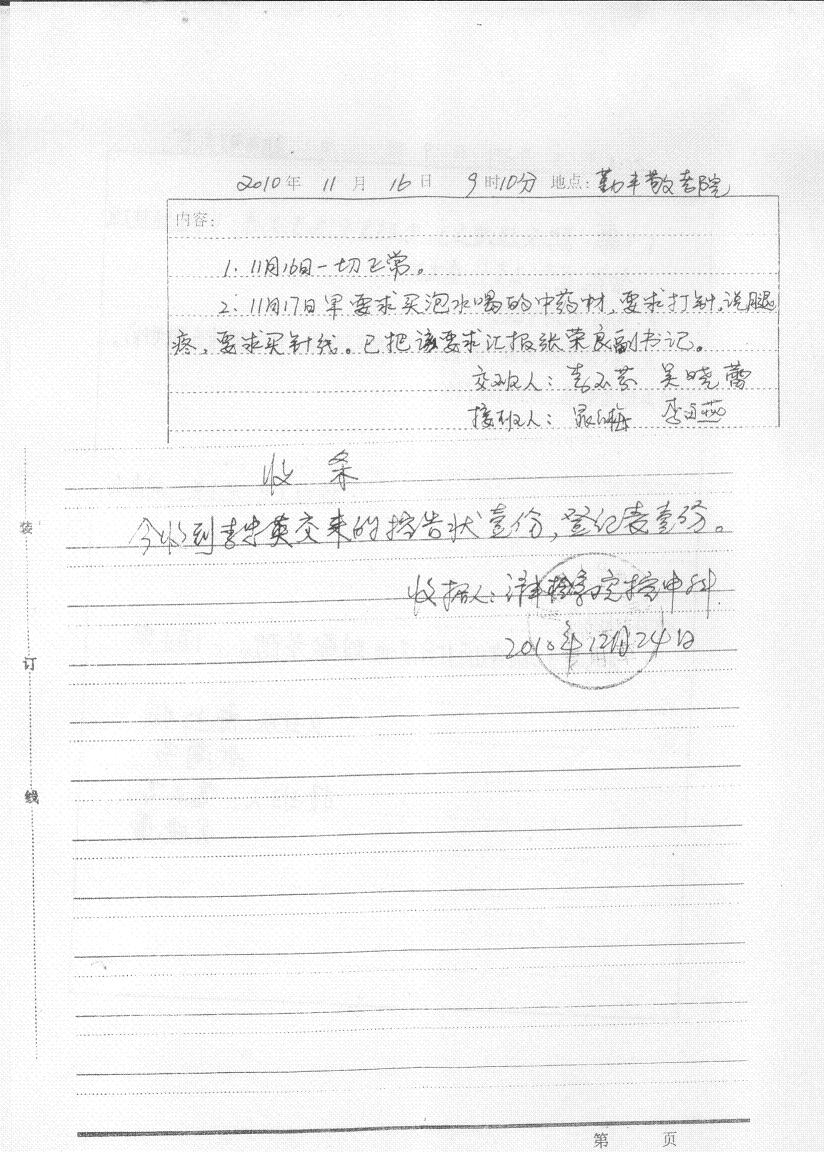 2010年 11 月 16日 9时10分 地点：勤丰敬老院
内容：
1. 11月16日一切正常。
2. 11月17日早要求买泡水喝的中药材，要求打针，说腿
疼，要求买针线。已把该要求汇报张荣良副书记。
交班人： 吴晓蕾
接班人：
收条
今收到 英交来的控告状壹份，登记表壹份。
收据人： 检察院控申科
2010年12月24日
装
订
线
第 页